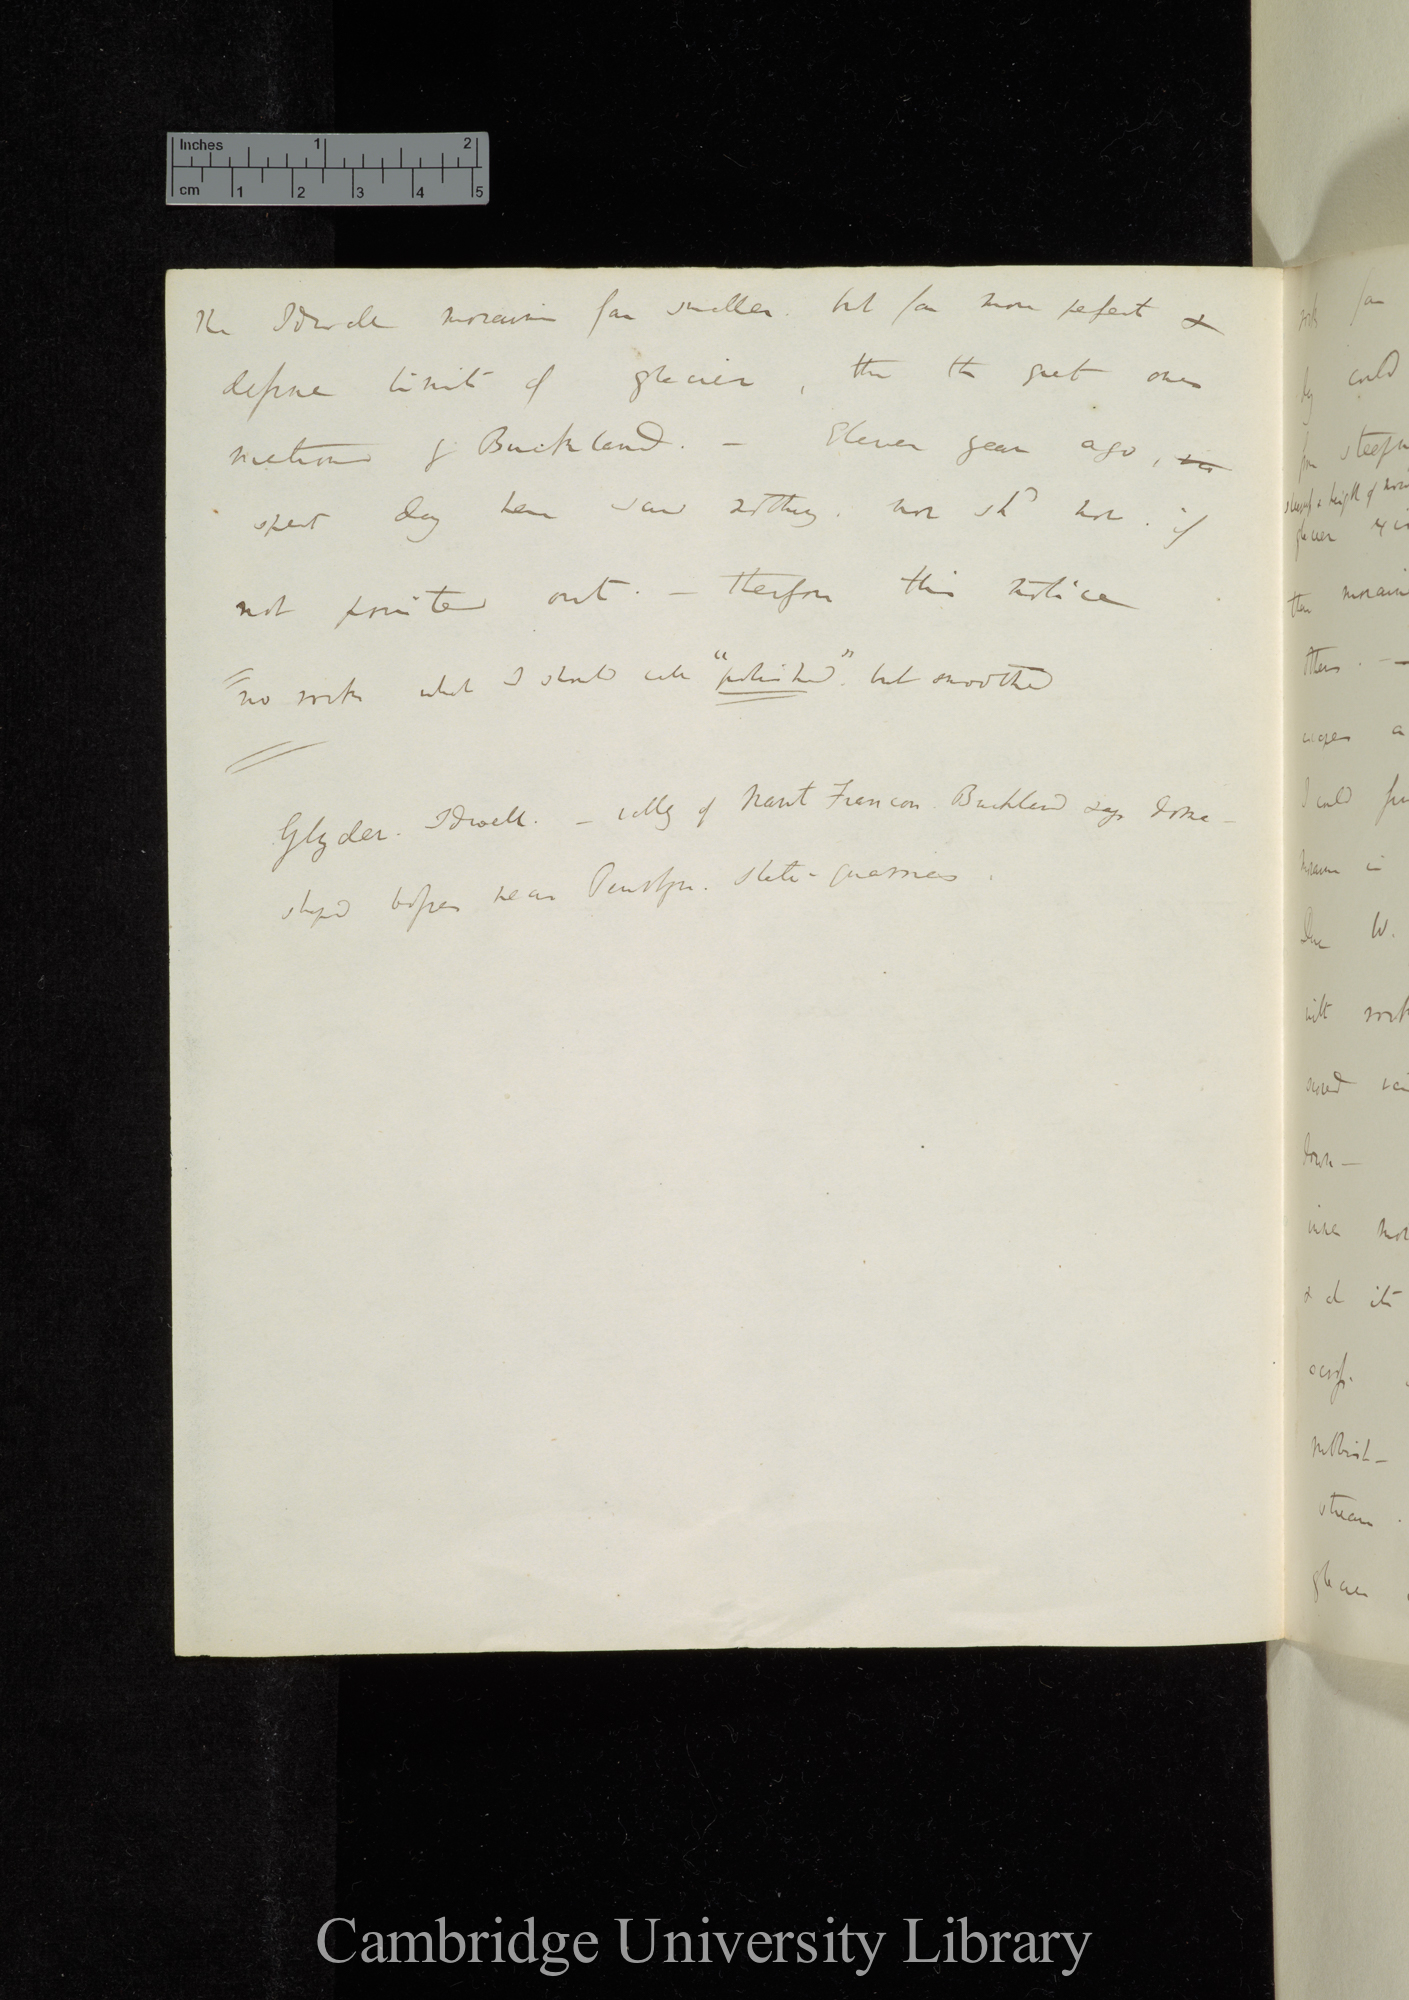 Inches 1 2
cm 1 2 3 4 5
The Idwell moraine far smaller. but far more perfect &
define limits of glacier, than the great ones
mentioned by Buckland. — Eleven years ago,
spent day here saw nothing. nor shd now. if
not pointed out. — Therefore this notice
no rocks what I should call "polished". but smoothed
Glyder. Idwell. — valley of Nant Francon. Buckland says dome-
shaped bosses near Penrhyn. slate-quarries.
far
could
moraine
others. —
I could
W.
down —
stream.
glacier
Cambridge University Library